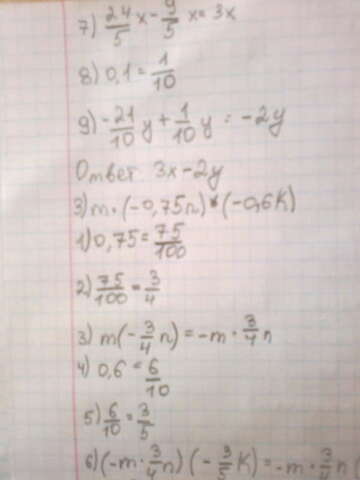 7) 24/5 x - 9/5 x = 3x
8) 0,1 = 1/10
9) -21/10 y + 1/10 y = -2y
Ответ 3x - 2y
3) m · (-0,75n) · (-0,6K)
1) 0,75 = 75/100
2) 75/100 = 3/4
3) m(-3/4 n) = -m · 3/4 n
4) 0,6 = 6/10
5) 6/10 = 3/5
6) (-m · 3/4 n) (-3/5 K) = -m · 3/4 n (